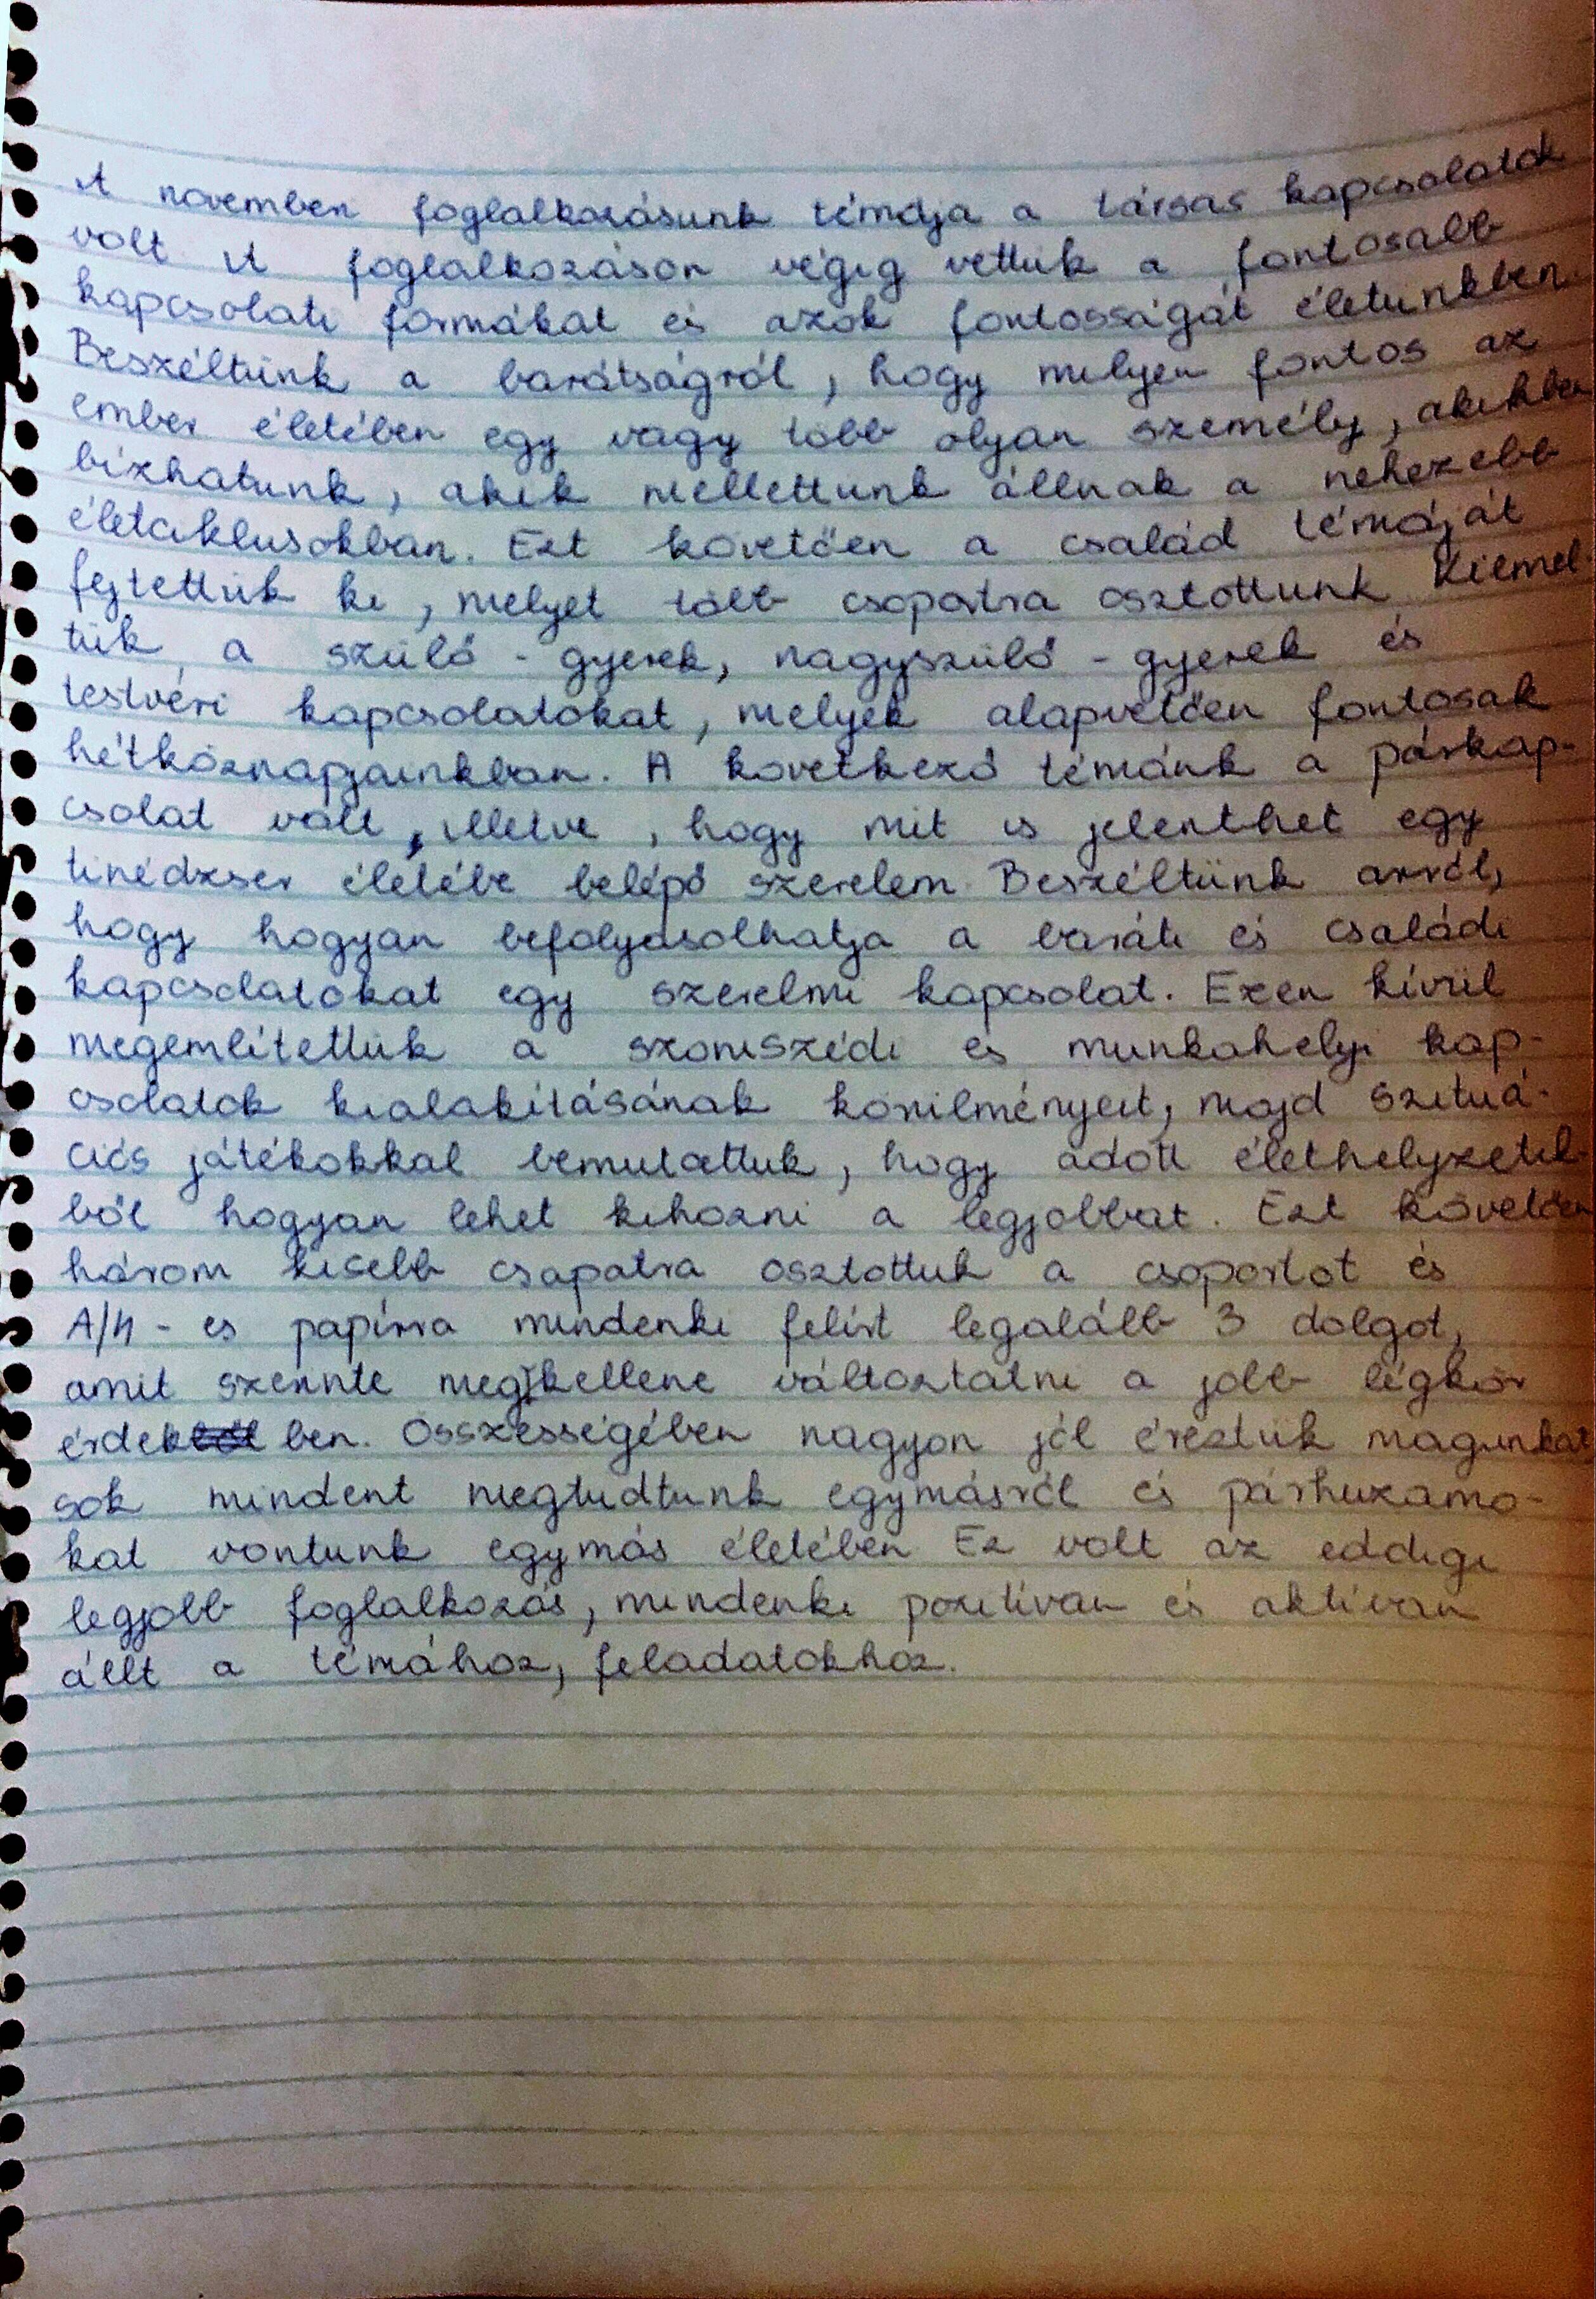 A november foglalkozásunk témája a társas kapcsolatok
volt A foglalkozáson végig vettük a fontosabb
kapcsolati formákat és azok fontosságát életünkben.
Beszéltünk a barátságról, hogy milyen fontos az
ember életében egy vagy több olyan személy, akikben
bízhatunk, akik mellettünk állnak a nehezebb
életciklusokban. Ezt követően a család témáját
fejtettük ki, melyet több csoportra osztottunk. Kiemel
tük a szülő - gyerek, nagyszülő - gyerek és
testvéri kapcsolatokat, melyek alapvetően fontosak
hétköznapjainkban. A következő témánk a párkap-
csolat volt, illetve, hogy mit is jelenthet egy
tinédzser életébe belépő szerelem. Beszéltünk arról,
hogy hogyan befolyásolhatja a baráti és családi
kapcsolatokat egy szerelmi kapcsolat. Ezen kívül
megemlítettük a szomszédi és munkahelyi kap-
csolatok kialakításának körülményeit, majd szituá-
ciós játékokkal bemutattuk, hogy adott élethelyzetek-
ből hogyan lehet kihozni a legjobbat. Ezt követően
három kisebb csapatra osztottuk a csoportot és
A/4 - es papírra mindenki felírt legalább 3 dolgot,
amit szerinte meg kellene változtatni a jobb légkör
érdekben. Összességében nagyon jól éreztük magunkat
sok mindent megtudtunk egymásról és párhuzamo-
kat vontunk egymás életében Ez volt az eddigi
legjobb foglalkozás, mindenki pozitívan és aktívan
állt a témához, feladatokhoz.